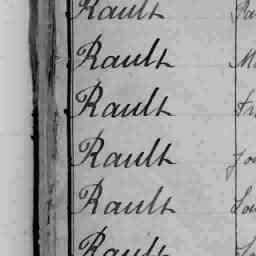 Rault
Rault
Rault
Rault
Rault
Rault